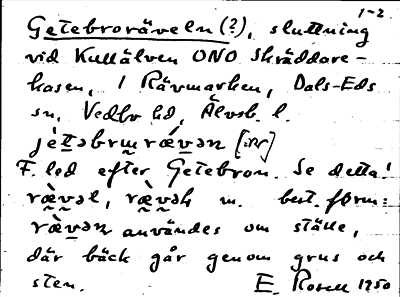 1-2
Getebroräveln (?), sluttning
vid Kullälven ONO Skräddare-
kasen, i Rävmarken, Dals-Eds
sn, Vedbo hd, Älvsb. l.
F. led efter Getebron. Se detta!
m. best. form:
användes om ställe,
där bäck går genom grus och
sten. E. Rosell 1950